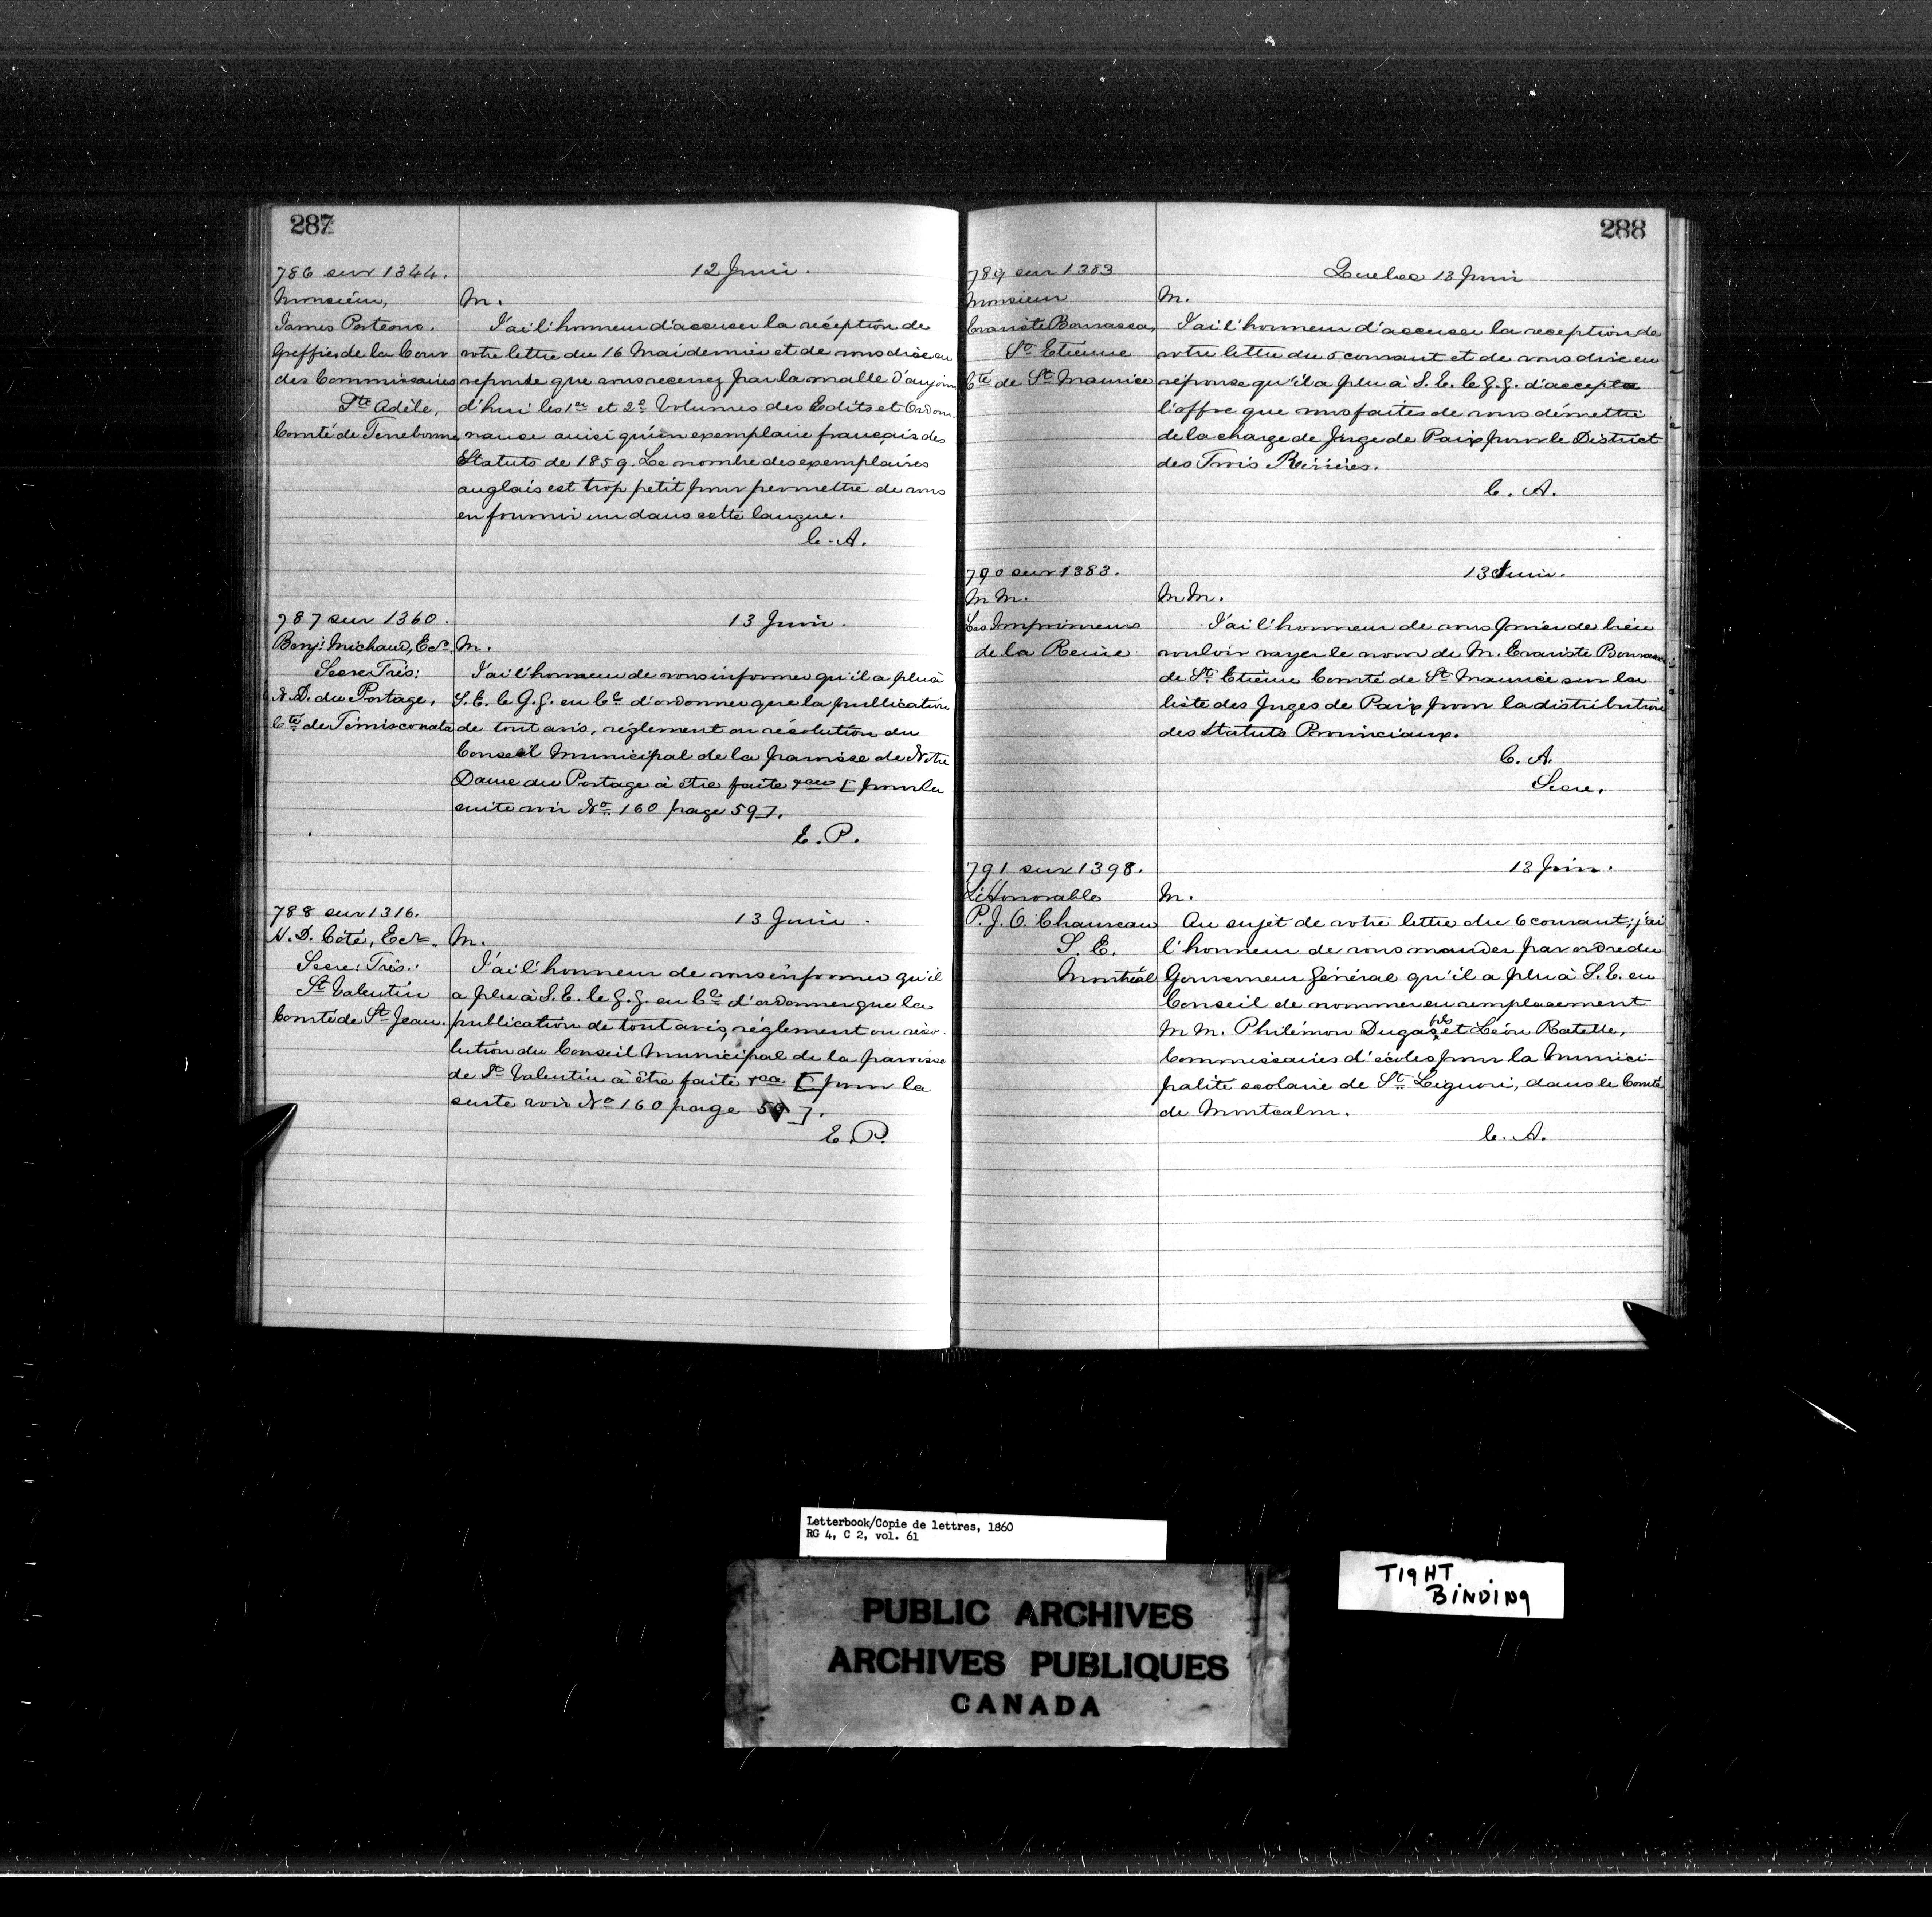 287
786 sur 1344.
Monsieur,
James Porteous.
Greffier de la Cour
des Commissaires
Ste Adèle,
Comté de Terrebonne
12 Juin.
M.
J'ai l'honneur d'accuser la réception de
votre lettre du 16 Mai dernier et de vous dire en
reponse que vous recevrez par la malle d'aujour
d'hui les 1er et 2e Volumes des Edits et Ordon-
nance ainsi qu'un exemplaire français des
Statuts de 1859. Le nombre des exemplaires
anglais est trop petit pour permettre de vous
en fournir un dans cette langue.
C. A.
787 sur 1360.
Benj: Michaud, Ecr.
Secre Trés:
N. D. du Portage,
Cté de Témisconata
13 Juin.
M.
J'ai l'honneur de vous informer qu'il a plu à
S. E. le G. G. en Cl d'ordonner que la publication
de tout avis, réglement ou résolution du
Conseil Municipal de la paroisse de Notre
Dame du Portage à être faite &ca [pour la
suite voir No 160 page 59].
E. P.
788 sur 1316.
N. D. Côté, Ecr.
Secre: Trés:
St Valentin
Comté de St Jean.
13 Juin.
M.
J'ai l'honneur de vous informer qu'il
a plu à S. E. le G. G. en Cl d'ordonner que la
publication de tout avis, réglement ou réso-
lution du Conseil Municipal de la paroisse
de St Valentin à être faite &ca [pour la
suite voir No 160 page 59].
E. P.
288
789 sur 1383
Monsieur
Evariste Bourassa,
St Etienne
Cté de St Maurice
Quebec 13 Juin
M.
J'ai l'honneur d'accuser la reception de
votre lettre du 5 courant et de vous dire en
réponse qu'il a plu à S. E. le G. G. d'accepter
l'offre que vous faites de vous démettre
de la charge de Juge de Paix pour le District
des Trois Rivières.
C. A.
790 sur 1383.
M M.
Les Imprimeurs
de la Reine.
13 Juin.
M M.
J'ai l'honneur de vous prier de bien
vouloir rayer le nom de M. Evariste Bourassa
de St Etienne Comté de St Maurice sur la
liste des Juges de Paix pour la distribution
des Statuts Provinciaux.
C. A.
Secre.
791 sur 1398.
L'Honorable
P. J. O. Chauveau
S. E.
Montréal
13 Juin.
M.
Au sujet de votre lettre du 6 courant; j'ai
l'honneur de vous mander par ordre du
Gouverneur Général qu'il a plu à S. E. en
Conseil de nommer en remplacement
M M. Philémon Dugas fils et Léon Ratelle,
Commissaires d'écoles pour la Munici-
palité scolaire de St Liguori, dans le Comté
de Montcalm.
C. A.
Letterbook/Copie de lettres, 1860
RG 4, C 2, vol. 61
PUBLIC ARCHIVES
ARCHIVES PUBLIQUES
CANADA
TIGHT
BINDING